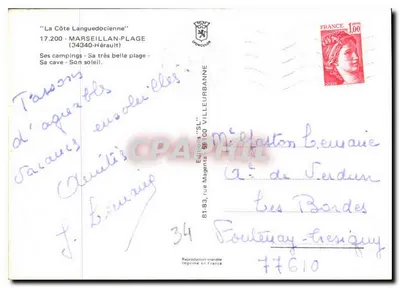 "La Côte Languedocienne"
17.200 - MARSEILLAN-PLAGE
(34340-Hérault)
Ses campings - Sa très belle plage -
Sa cave - Son soleil.
Passons
d'agréables
vacances ensoleillées.
Amitiés
J. Lemaire
34
Editions "SL"
81-83, rue Magenta 69100 VILLEURBANNE
FRANCE
1,00
Mr Gaston Lemaire
de Verdun
Les Bordes
Fontenay-Tresigny
77610
Reproduction interdite
Imprimé en France